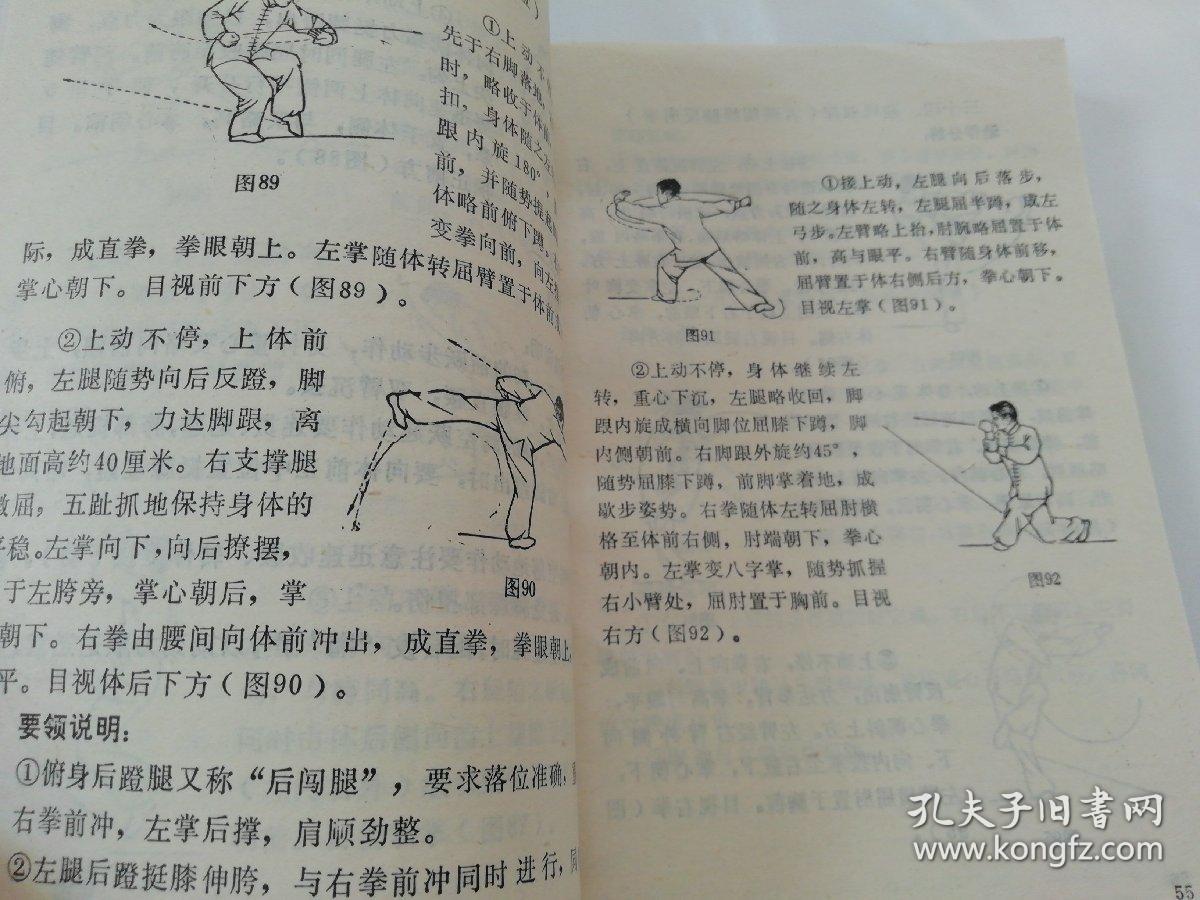 ①上动不
先于右脚落地,
时,略收于体前
扣,身体随之左
跟内旋180°,
前,并随势提
体略前俯下蹲,
变拳向前,向左
图89
际,成直拳,拳眼朝上。左掌随体转屈臂置于体前
掌心朝下。目视前下方(图89)。
②上动不停,上体前
俯,左腿随势向后反蹬,脚
尖勾起朝下,力达脚跟,离
地面高约40厘米。右支撑腿
微屈,五趾抓地保持身体的
平稳。左掌向下,向后撩摆,
于左胯旁,掌心朝后,掌
朝下。右拳由腰间向体前冲出,成直拳,拳眼朝上,
平。目视体后下方(图90)。
图90
要领说明:
①俯身后蹬腿又称“后闯腿”,要求落位准确,
右拳前冲,左掌后撑,肩顺劲整。
②左腿后蹬挺膝伸胯,与右拳前冲同时进行,
①接上动,左腿向后落步,
随之身体左转,左腿屈半蹲,成左
弓步。左臂略上抬,肘腕略屈置于体
前,高与眼平。右臂随身体前移,
屈臂置于体右侧后方,拳心朝下。
目视左掌(图91)。
图91
②上动不停,身体继续左
转,重心下沉,左腿略收回,脚
跟内旋成横向脚位屈膝下蹲,脚
内侧朝前。右脚跟外旋约45°,
随势屈膝下蹲,前脚掌着地,成
歇步姿势。右拳随体左转屈肘横
格至体前右侧,肘端朝下,拳心
朝内。左掌变八字掌,随势抓握
右小臂处,屈肘置于胸前。目视
右方(图92)。
图92
55
孔夫子旧书网
www.kongfz.com